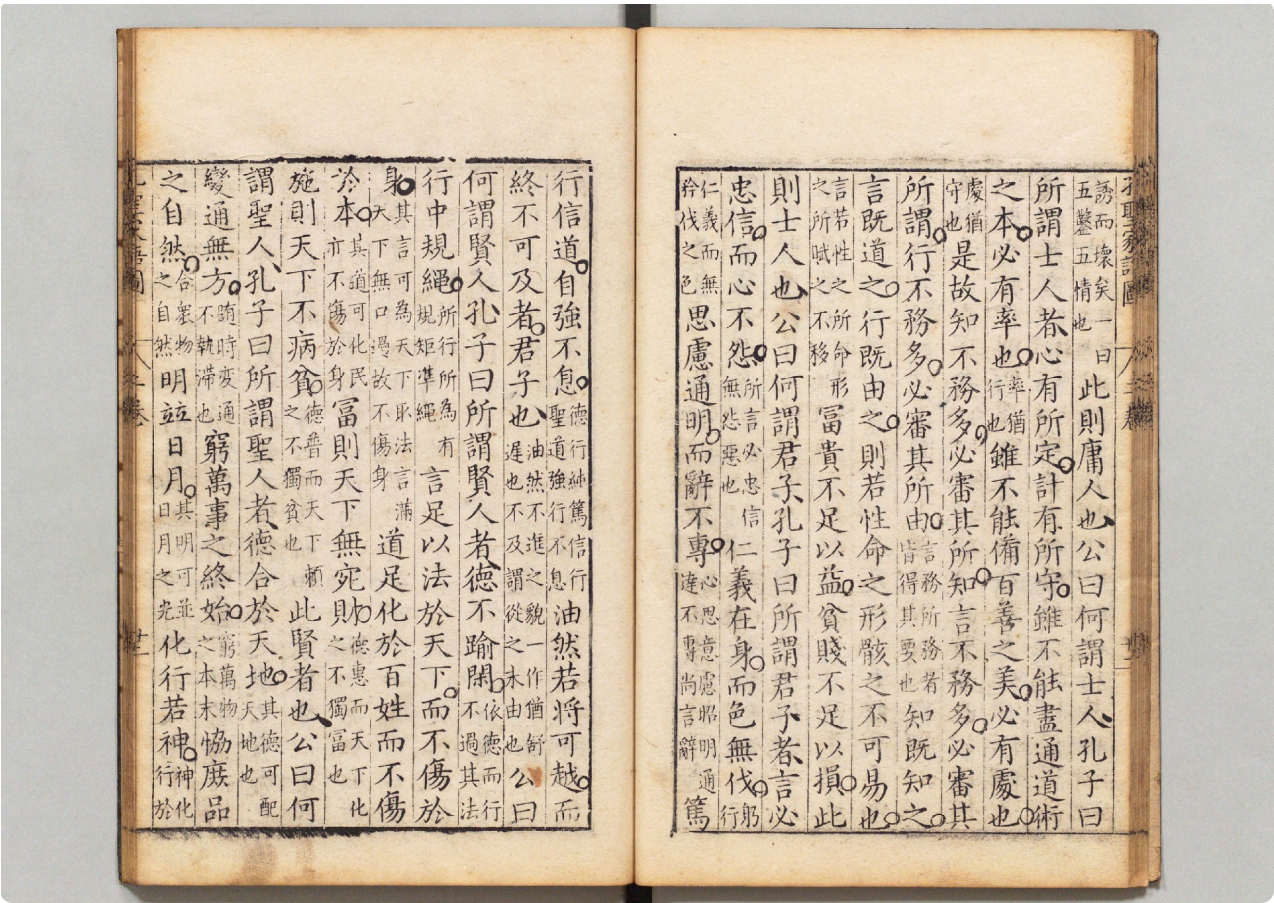 孔聖家語圖
誘而壞矣一曰五鑿五情也此則庸人也公曰何謂士人孔子曰
所謂士人者心有所定計有所守雖不能盡通道術
之本必有率也率猶行也雖不能備百善之美必有處也
處猶守也是故知不務多必審其所知言不務多必審其
所謂行不務多必審其所由言務所務者皆得其要也知既知之
言既道之行既由之則若性命之形骸之不可易也
言若性之所命形之所賦之不移富貴不足以益貧賤不足以損此
則士人也公曰何謂君子孔子曰所謂君子者言必
忠信而心不怨所言必忠信無怨惡也仁義在身而色無伐躬行
仁義而無矜伐之色思慮通明而辭不專心思意慮昭明通達不專尚言辭篤
行信道自強不息德行純篤信行聖道強行不息油然若将可越而
終不可及者君子也油然不進之貌一作猶舒遲也不及謂從之末由也公曰
何謂賢人孔子曰所謂賢人者德不踰閑依德而行不過其法
行中規繩所行所為有規矩準繩言足以法於天下而不傷於
身其言可為天下取法言滿天下無口過故不傷身道足化於百姓而不傷
於本其道可化民亦不傷於身富則天下無宛財德惠而天下化之不獨富也
施則天下不病貧德普而天下賴之不獨貧也此賢者也公曰何
謂聖人孔子曰所謂聖人者德合於天地其德可配天地也
變通無方随時變通不執滯也窮萬事之終始窮萬物之本末恊庶品
之自然合衆物之自然明竝日月其明可並日月之光化行若神神化行於